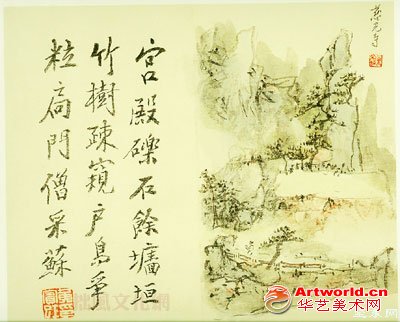 慈光寺
宮殿礫石餘垣
竹樹疎窺戶鳥爭
粒扃門僧采蘇
Artworld.cn
华艺美术网